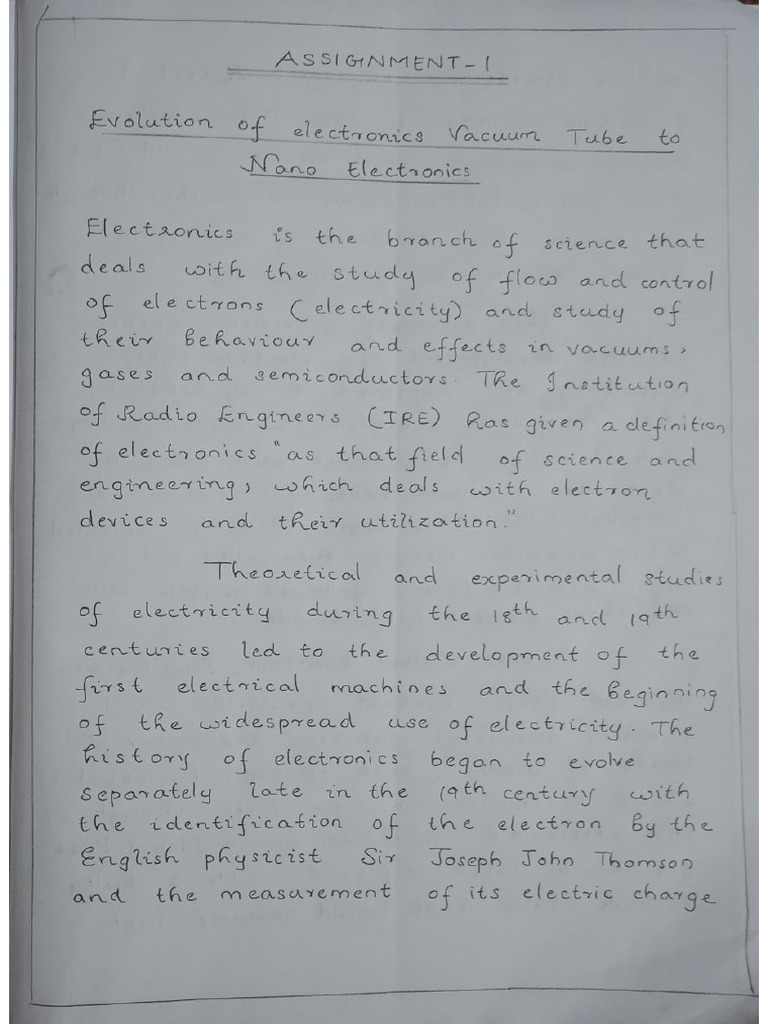 ASSIGNMENT-1
Evolution of electronics Vacuum Tube to
Nano Electronics
Electronics is the branch of science that
deals with the study of flow and control
of electrons (electricity) and study of
their behaviour and effects in vacuums,
gases and semiconductors. The Institution
of Radio Engineers (IRE) has given a definition
of electronics "as that field of science and
engineering, which deals with electron
devices and their utilization."
Theoretical and experimental studies
of electricity during the 18th and 19th
centuries led to the development of the
first electrical machines and the beginning
of the widespread use of electricity. The
history of electronics began to evolve
separately late in the 19th century with
the identification of the electron by the
English physicist Sir Joseph John Thomson
and the measurement of its electric charge